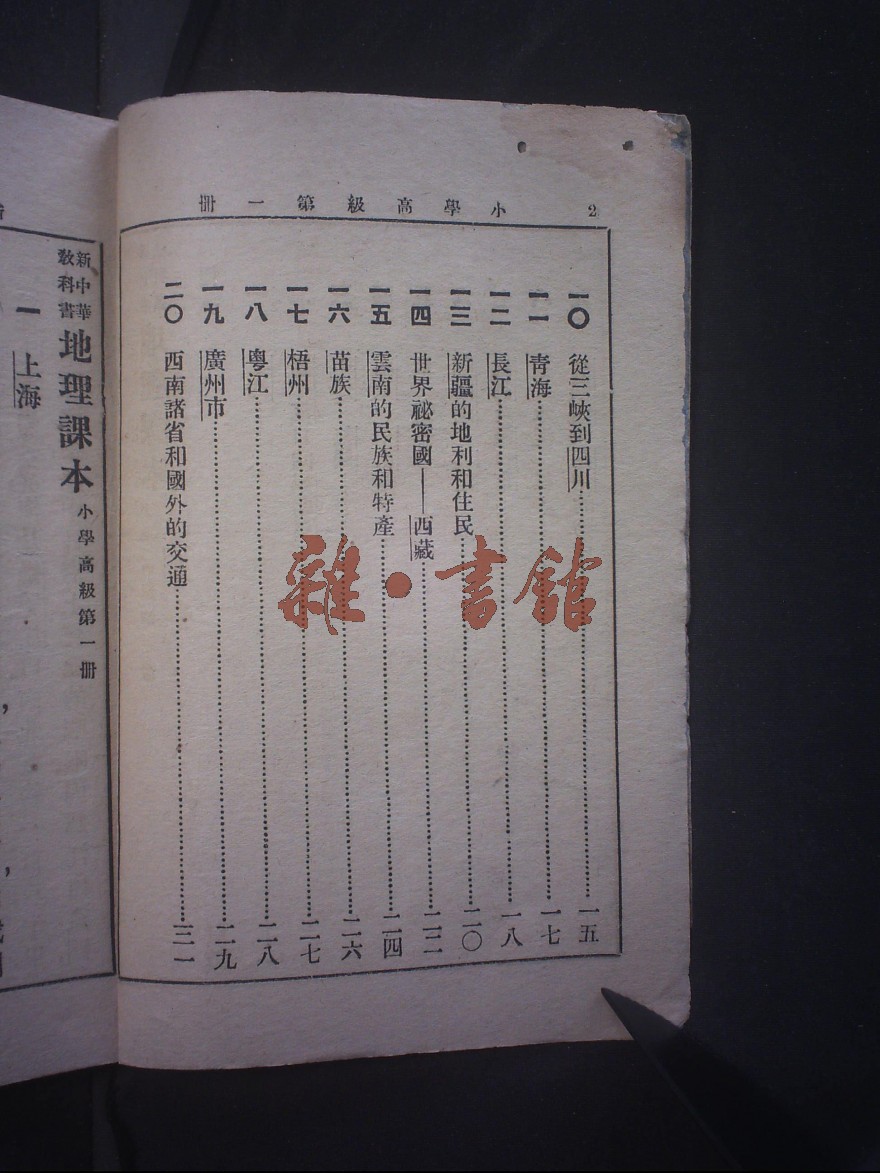 2
小學高級第一冊
一〇 從三峽到四川……一五
一一 青海……一七
一二 長江……一八
一三 新疆的地利和住民……二〇
一四 世界祕密國——西藏……二二
一五 雲南的民族和特產……二四
一六 苗族……二六
一七 梧州……二七
一八 粵江……二八
一九 廣州市……二九
二〇 西南諸省和國外的交通……三一
雜·書館
新中華
教科書
地理課本
小學高級第一冊
一 上海